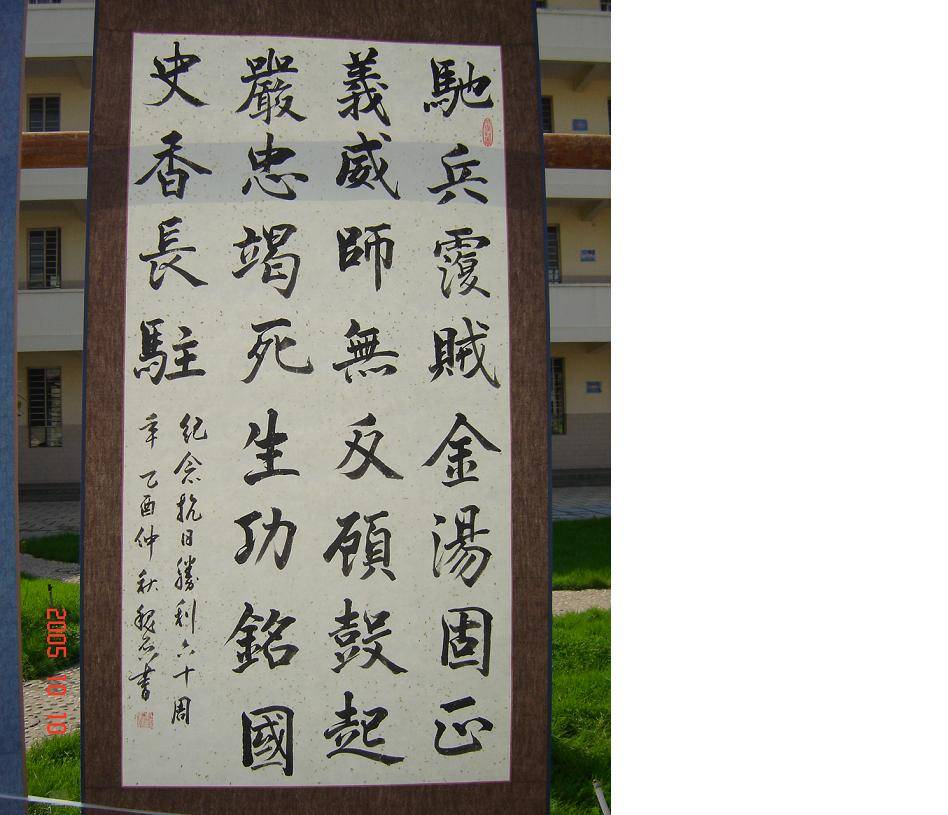 馳兵覆賊金湯固正
義威師無反顧鼓起
嚴忠竭死生功銘國
史香長駐
紀念抗日勝利六十周
年乙酉仲秋書
2005 10 10